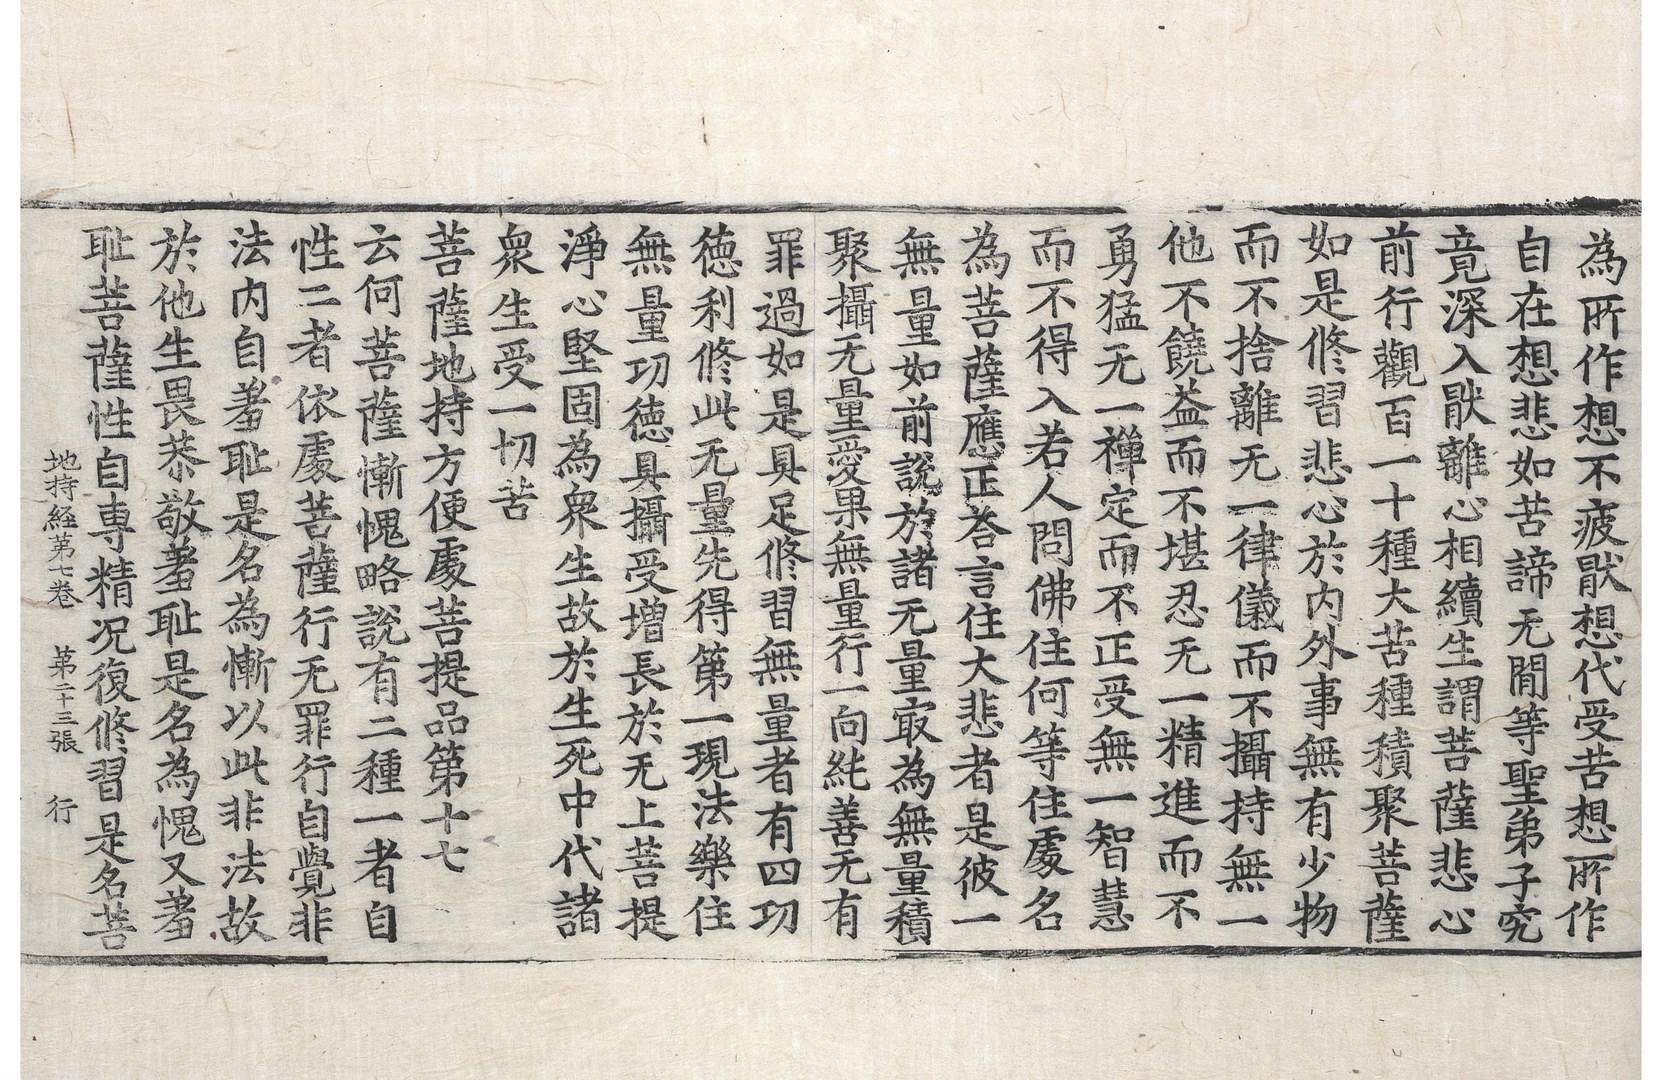 為所作想不疲猒想代受苦想所作
自在想悲如苦諦无閒等聖弟子究
竟深入猒離心相續生謂菩薩悲心
前行觀百一十種大苦種積聚菩薩
如是修習悲心於内外事無有少物
而不捨離无一律儀而不攝持無一
他不饒益而不堪忍无一精進而不
勇猛无一禪定而不正受無一智慧
而不得入若人問佛住何等住處名
為菩薩應正荅言住大悲者是彼一
無量如前說於諸无量㝡為無量積
聚攝无量愛果無量行一向純善无有
罪過如是具足修習無量者有四功
徳利修此无量先得第一現法樂住
無量功徳具攝受增長於无上菩提
淨心堅固為衆生故於生死中代諸
衆生受一切苦
菩薩地持方便處菩提品第十七
云何菩薩慚愧略說有二種一者自
性二者依處菩薩行无罪行自覺非
法内自羞耻是名為慚以此非法故
於他生畏恭敬羞耻是名為愧又羞
耻菩薩性自専精况復修習是名菩
地持経第七卷 第二十三張 行